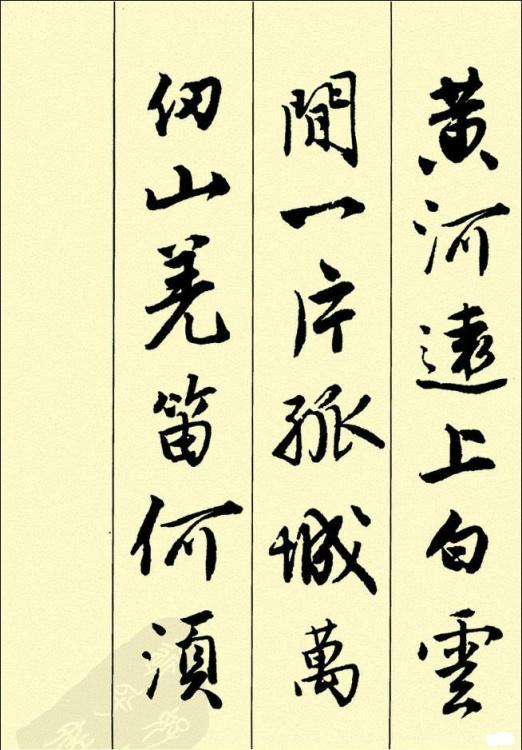 黄河遠上白雲
間一片孤城萬
仞山羌笛何須